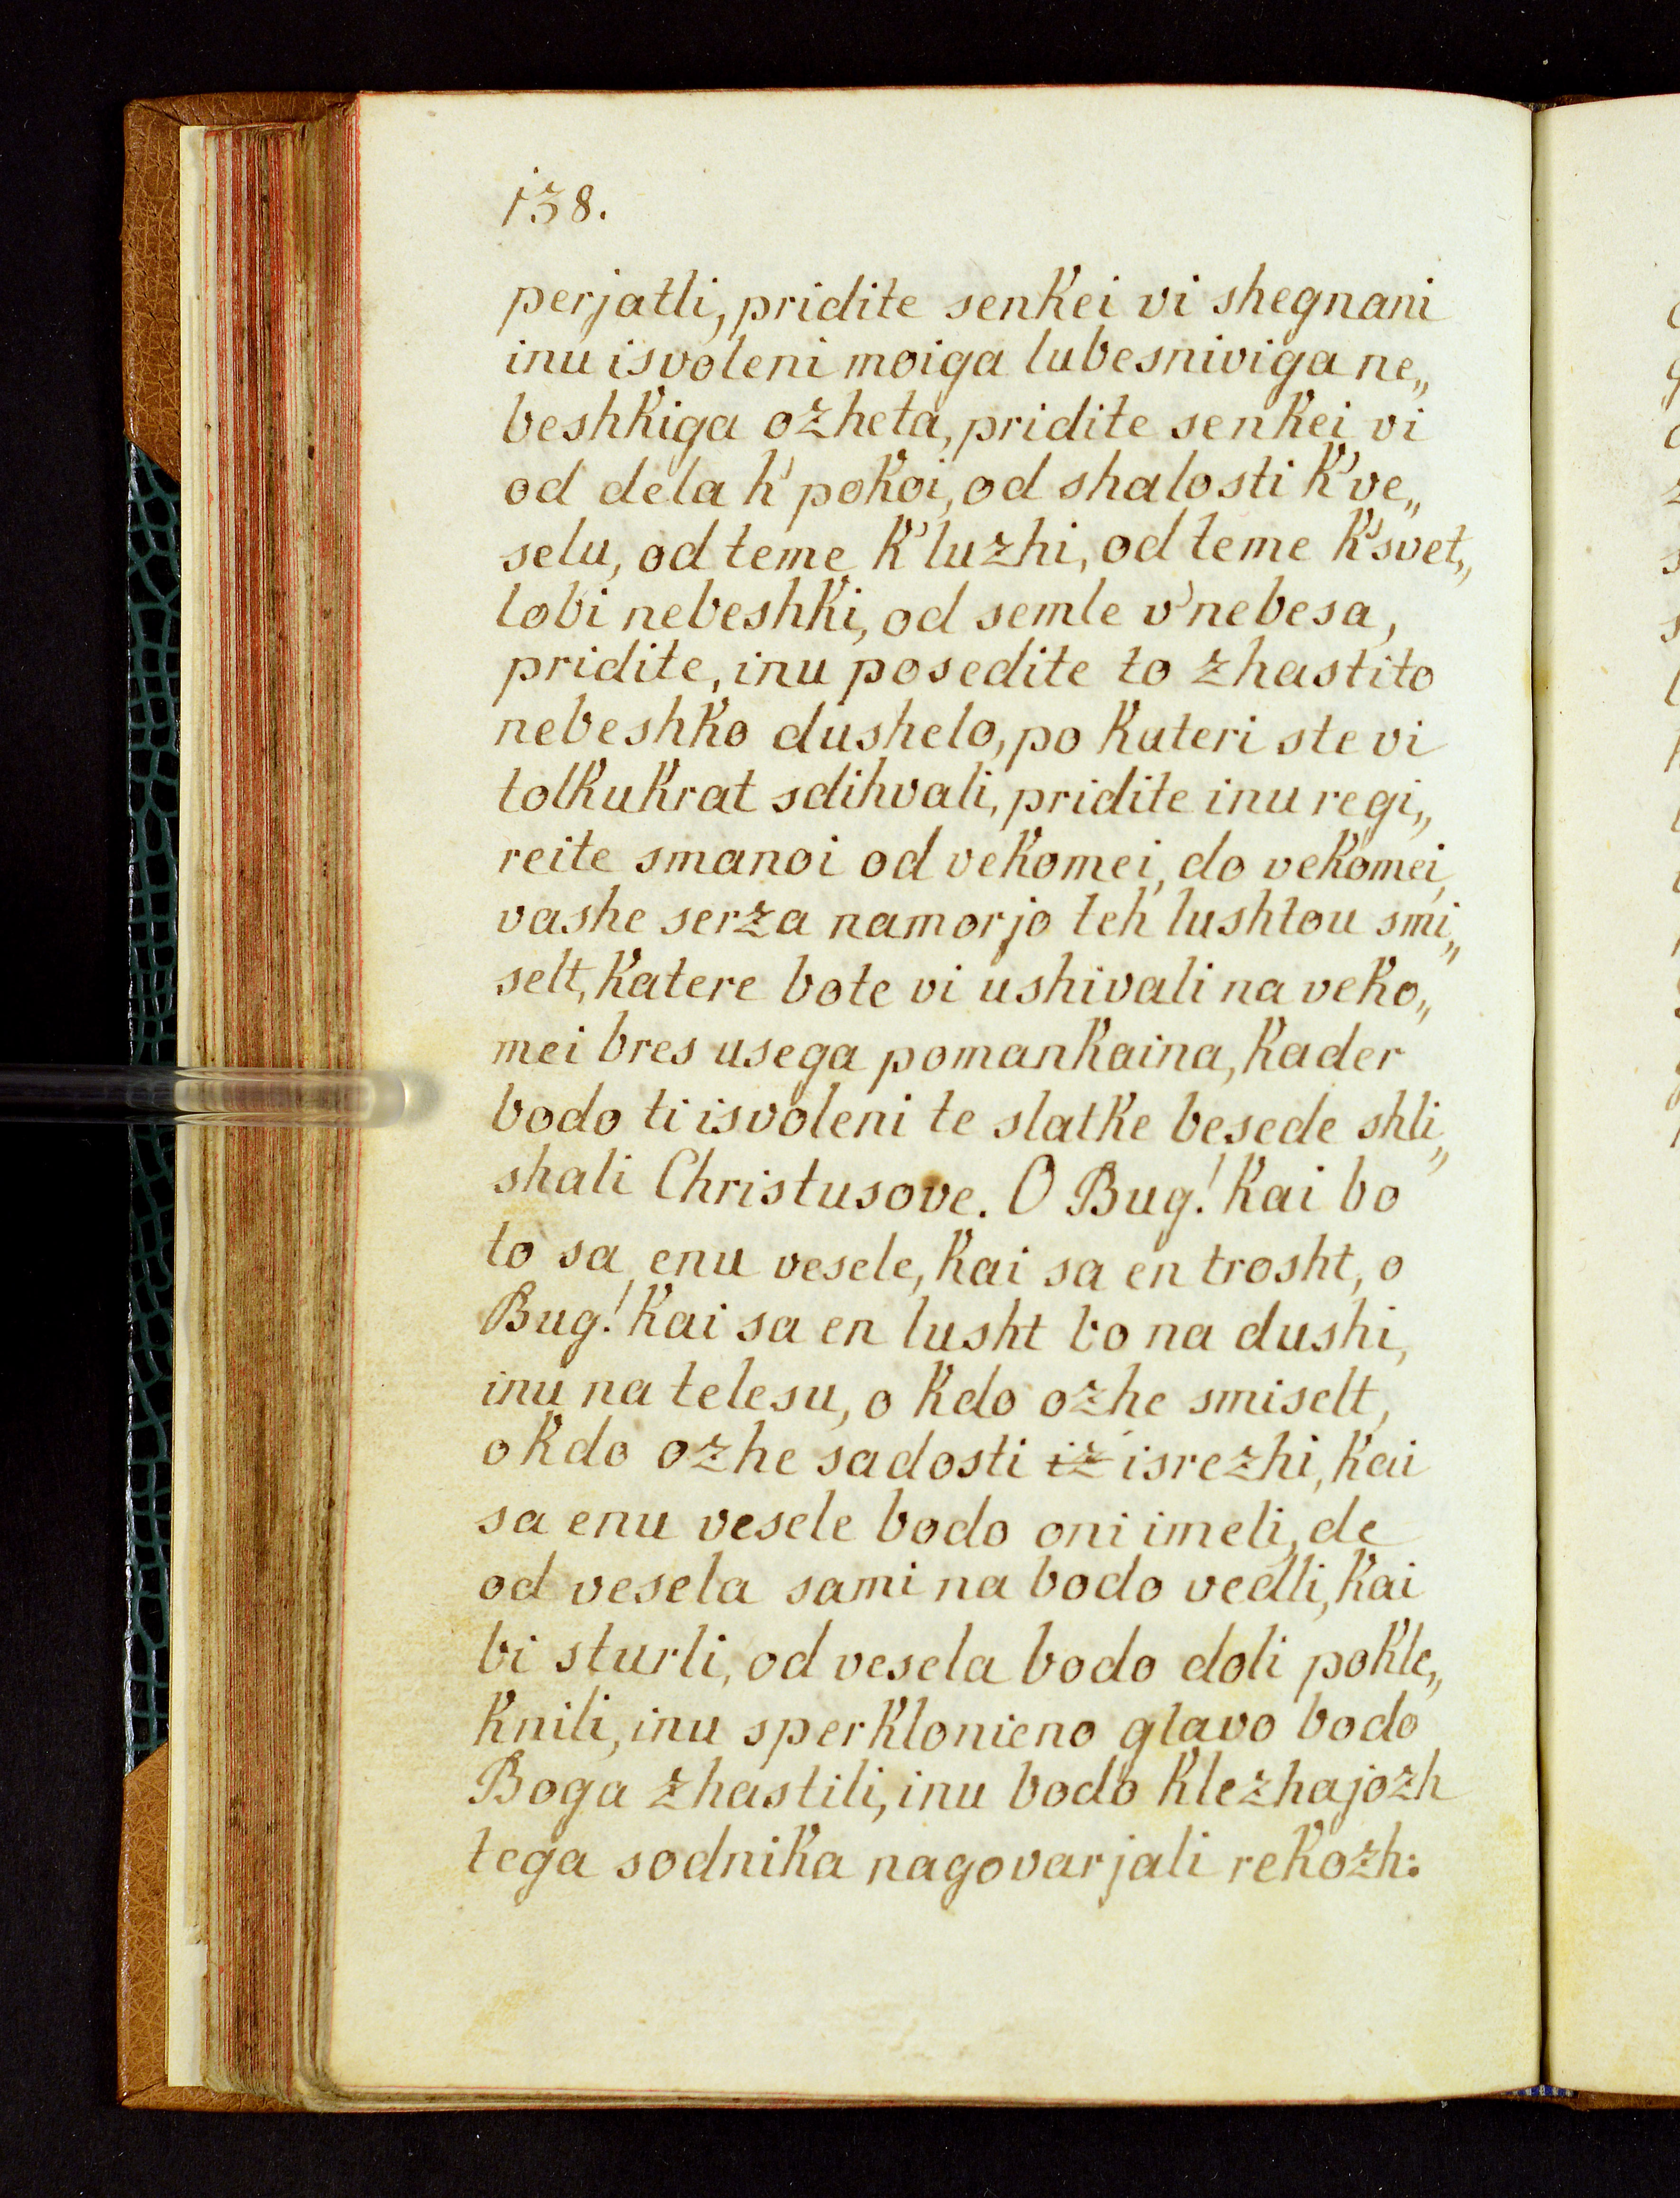 138.
perjatli, pridite senkei vi shegnani
inu isvoleni moiga lubesniviga ne„
beshkiga ozheta, pridite senkei vi
od dela k'pokoi, od shalosti k've„
selu, od teme k'luzhi, od teme k'svet„
lobi nebeshki, od semle v'nebesa,
pridite, inu posedite to zhastito
nebeshko dushelo, po kateri ste vi
tolkukrat sdihvali, pridite inu regi„
reite smanoi od vekomei, do vekomei,
vashe serza namorjo teh lushtou smi„
selt, katere bote vi ushivali na veko„
mei bres usega pomankaina, kader
bodo ti isvoleni te slatke besede shli„
shali Christusove. O Bug! kai bo
to sa enu vesele, kai sa en trosht, o
Bug! kai sa en lusht bo na dushi,
inu na telesu, o kdo ozhe smiselt,
o kdo ozhe sadosti iz isrezhi, kai
sa enu vesele bodo oni imeli, de
od vesela sami na bodo vedli, kai
bi sturli, od vesela bodo doli pokle„
knili, inu sperklonieno glavo bodo
Boga zhastili, inu bodo klezhajozh
tega sodnika nagovarjali rekozh: